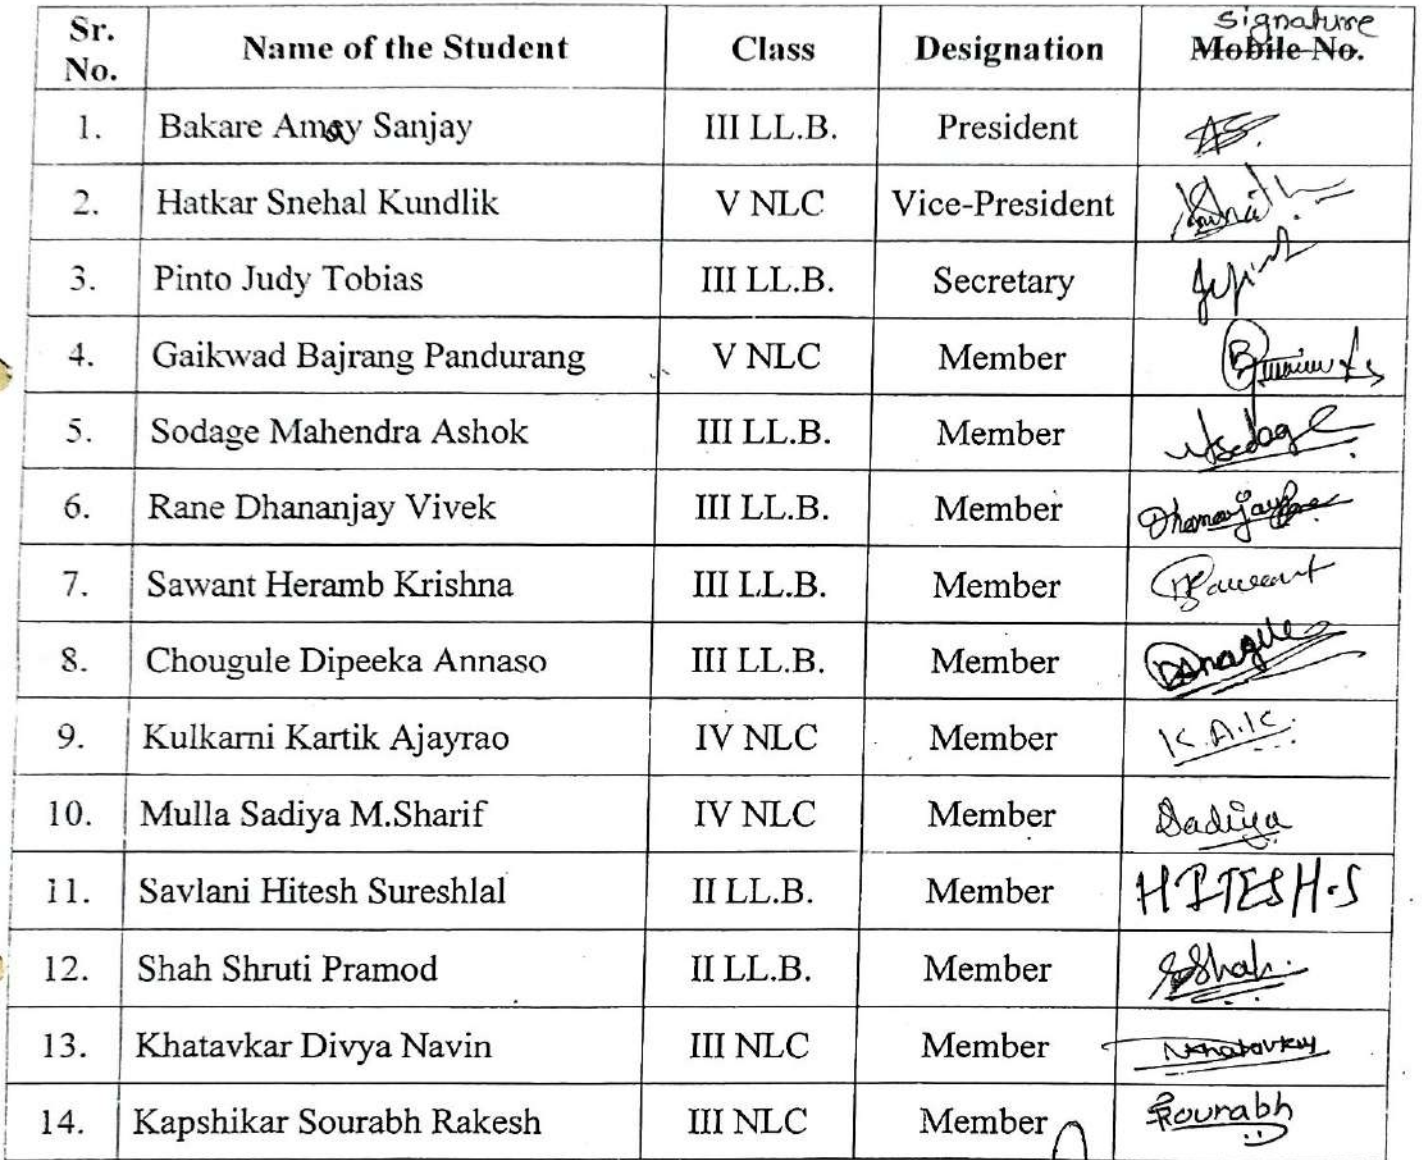 Sr. No. Name of the Student Class Designation Signature Mobile No.
1. Bakare Amay Sanjay III LL.B. President
2. Hatkar Snehal Kundlik V NLC Vice-President
3. Pinto Judy Tobias III LL.B. Secretary
4. Gaikwad Bajrang Pandurang V NLC Member
5. Sodage Mahendra Ashok III LL.B. Member
6. Rane Dhananjay Vivek III LL.B. Member
7. Sawant Heramb Krishna III LL.B. Member
8. Chougule Dipeeka Annaso III LL.B. Member
9. Kulkarni Kartik Ajayrao IV NLC Member K.A.K.
10. Mulla Sadiya M.Sharif IV NLC Member Sadiya
11. Savlani Hitesh Sureshlal II LL.B. Member HITESH.S
12. Shah Shruti Pramod II LL.B. Member SShah.
13. Khatavkar Divya Navin III NLC Member
14. Kapshikar Sourabh Rakesh III NLC Member Sourabh